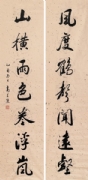 風度鶴聲聞遠壑
山橫雨色卷浮嵐